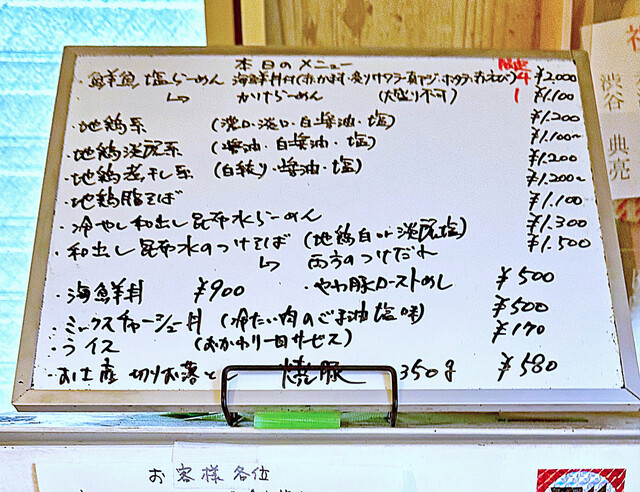 本日のメニュー
・鮮魚塩らーめん 海鮮丼付 限定4 ¥2,000
↳ かけらーめん (大盛り不可) 1 ¥1,100
・地鶏系 (濃口・淡口・白醤油・塩) ¥1,200
・地鶏淡麗系 (醤油・白醤油・塩) ¥1,100~
・地鶏煮干し系 (白絞り・醤油・塩) ¥1,200
・地鶏脂そば ¥1,200~
・冷やし和出し昆布水らーめん ¥1,100
・和出し昆布水のつけそば (地鶏白 or 淡麗塩) ¥1,300
↳ 両方のつけだれ ¥1,500
・海鮮丼 ¥900 ・やわ豚ローストめし ¥500
・ミックスチャーシュー丼 (冷たい肉のごま油塩味) ¥500
・ライス (おかわり一回サービス) ¥170
・お土産 切りお落とし 焼豚 350g ¥580
お客様各位
渋谷 典亮